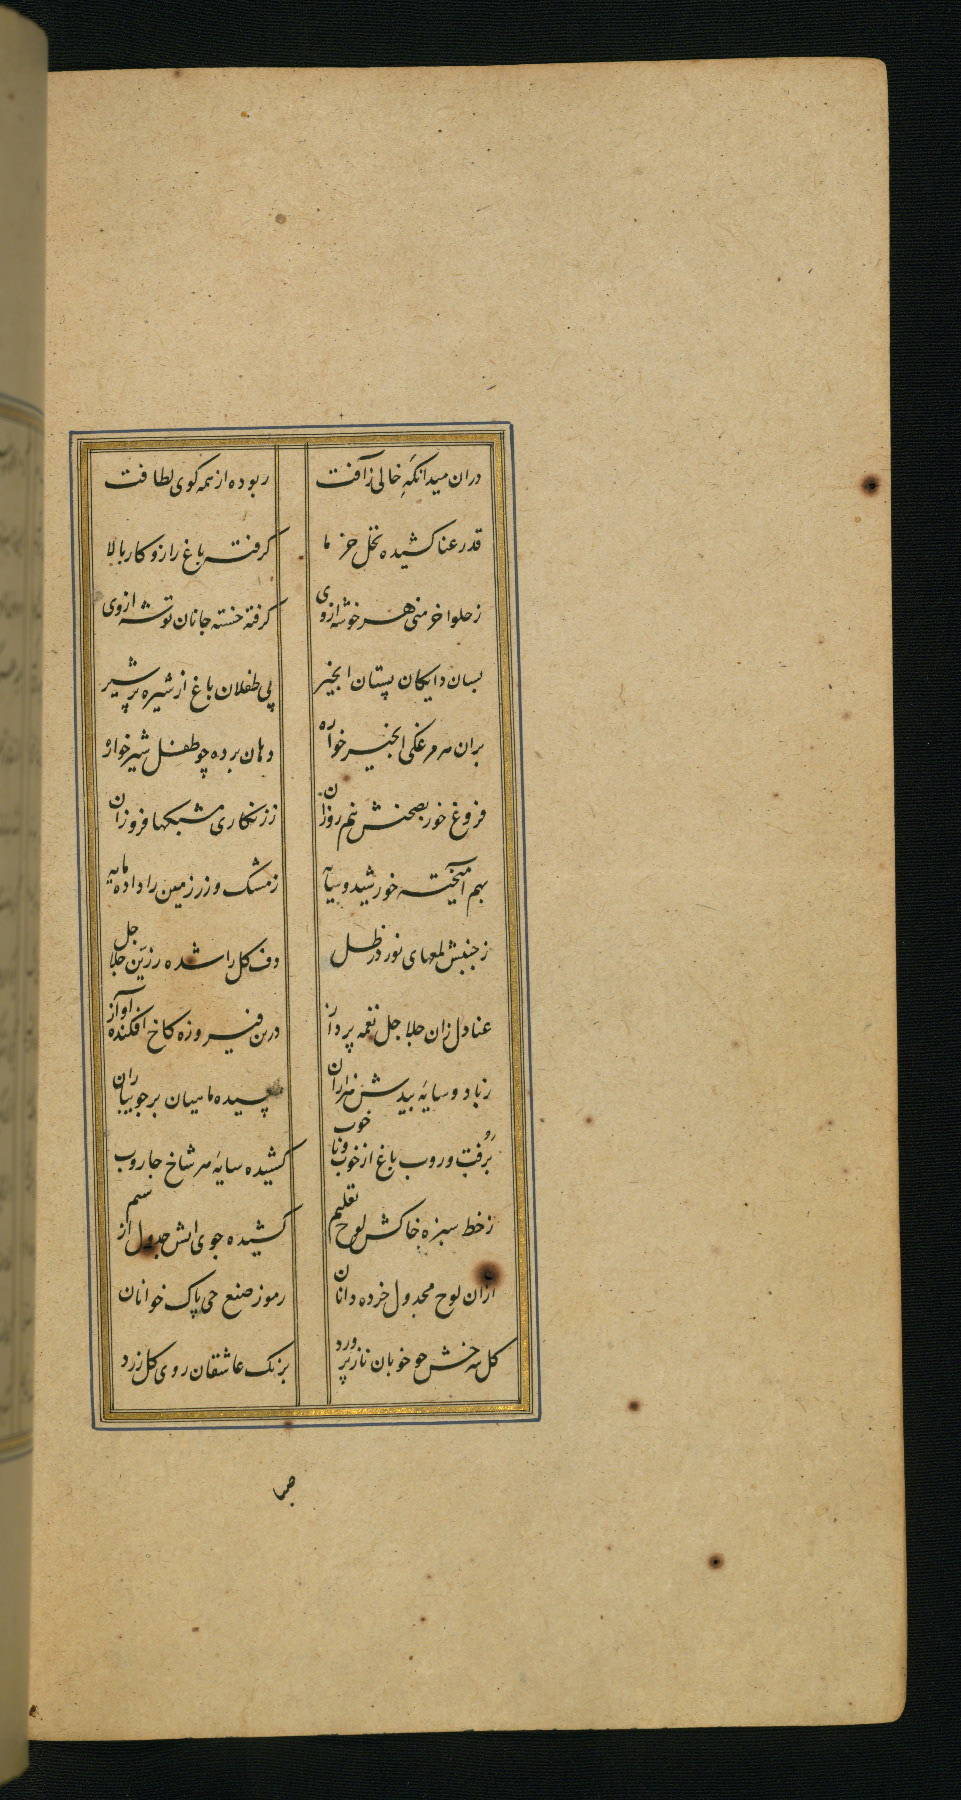 دران میدانکه خالی زآفت ربوده از همه کوی لطافت
قد رعنا کشیده نخل خرما کرفته باغ را زو کار بالا
ز حلوا خرمنی هر خوشه از وی کرفته خسته جانان توشه از وی
بسان دایکان پستان انجیر پی طفلان باغ از شیره پر شیر
بران هر مرغکی انجیر خواره دهان برده چو طفل شیرخواره
فروغ خور بصحنش نیم روزان ز زنکاری مشبکها فروزان
بهم آمیخته خورشید و سایه ز مشک و زر زمین را داده مایه
ز جنبش لمعهای نور در ظل دف کل را شده زرین جلاجل
عنادل زان جلاجل نغمه پرداز درین فیروزه کاخ افکنده آواز
ز باد و سایۀ بیدش هزاران چسپیده ماهیان بر جویباران
برُفت و روب باغ از خوب و ناخوب کشیده سایۀ هر شاخ جاروب
ز خط سبزه خاکش لوح تعلیم کشیده جوی ابش جدول از سیم
ازان لوح مجدول خرده دانان رموز صنع حی پاک خوانان
کل سرخش چو خوبان نازپرورد برنک عاشقان روی کل زرد
صبا